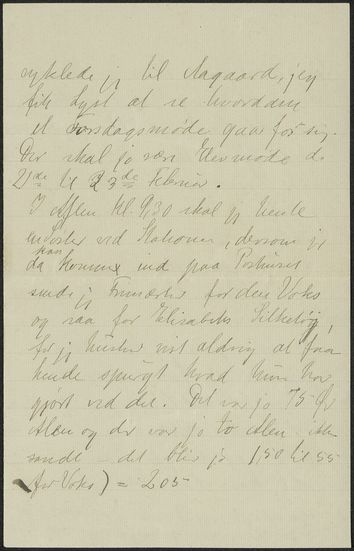 cyklede jeg til Aagaard, jeg
fik Lyst at se hvordan
et Torsdagsmøde gaar for sig.
Der skal jo være Elevmøde d.
21de til 23de Februar.
I Aften Kl. 9,30 skal jeg hente
ved Stationen, dersom jeg
da kan komme ind paa Posthuset
sende jeg Frimærker for den Voks
og saa for Elisabeths Silketøj,
for jeg husker vist aldrig at faa
hende spurgt hvad hun har
gjort ved det. Det var jo 75 Øre
Alen og der var jo to Alen ikke
sandt det blir jo 1,50 til 55
for Voks) = 205